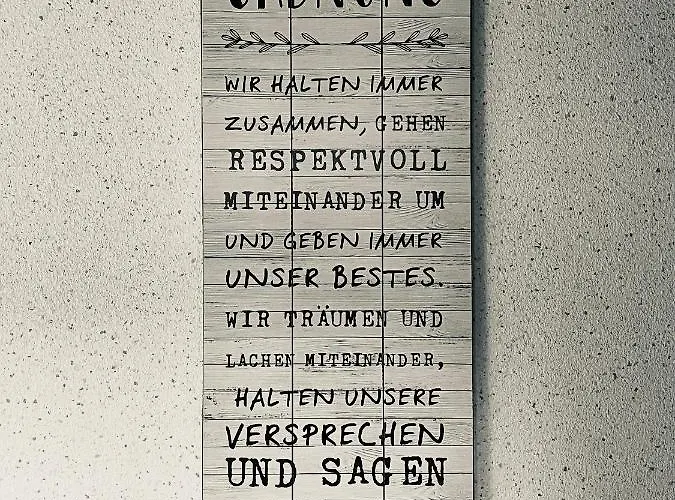 WIR HALTEN IMMER
ZUSAMMEN, GEHEN
RESPEKTVOLL
MITEINANDER UM
UND GEBEN IMMER
UNSER BESTES.
WIR TRÄUMEN UND
LACHEN MITEINANDER,
HALTEN UNSERE
VERSPRECHEN
UND SAGEN